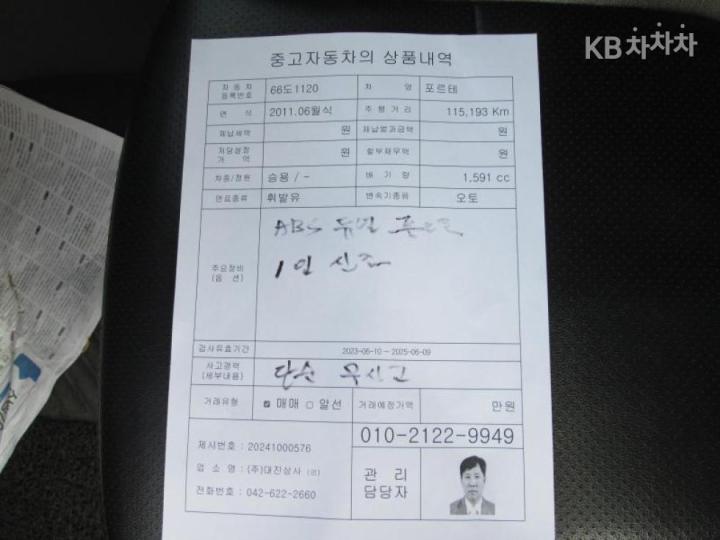 KB차차차
중고자동차의 상품내역
자 동 차 등록번호 66도1120 차 명 포르테
연 식 2011.06월식 주 행 거 리 115,193 Km
체납세액 원 체납범과금액 원
저당설정 가 액 원 할부채무액 원
차종/정원 승용 / - 배 기 량 1,591 cc
연료종류 휘발유 변속기종류 오토
ABS 듀얼
주요장비 (옵 션) 1인 신조
검사유효기간 2023-06-10 ~ 2025-06-09
사고경력 (세부내용) 단순 무사고
거래유형 매매 알선 거래예정가액 만원
010-2122-9949
제시번호 : 20241000576
업 소 명 : (주)대진상사
전화번호 : 042-622-2660
관 리 담당자